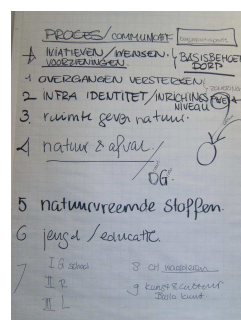 PROCES/COMMUNICATIE
INIATIEVEN/WENSEN.
VOORZIENINGEN. BASISBEHOEFTE
DORP
1 OVERGANGEN VERSTERKEN
2 INFRA IDENTITEIT/INRICHINGS
NIVEAU
3. ruimte geven natuur.
4 natuur & afval.
DG.
5 natuurvreemde stoffen.
6 jeugd/educatie.
7 I G school
II P
III L
8 CH
9 kunst & cultuur